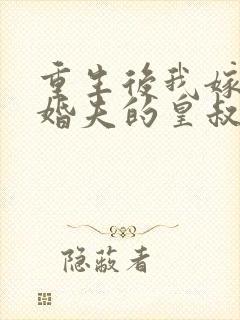 重生後我嫁
婚夫的皇叔
隐蔽者